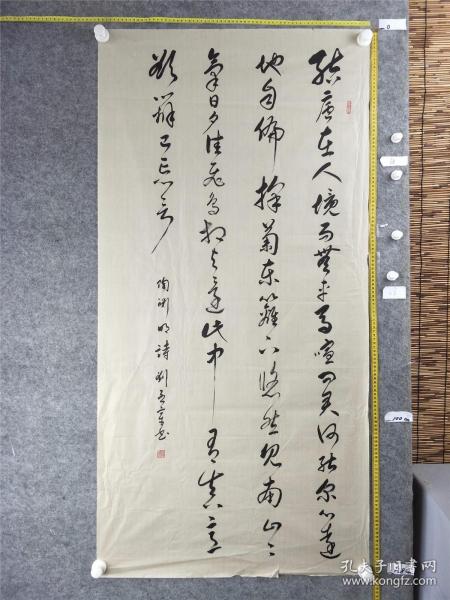 结庐在人境而无车马喧问君何能尔心远
地自偏採菊东篱下悠然见南山山
气日夕佳飞鸟相与还此中有真意
欲辩已忘言
陶渊明詩刘
孔夫子旧书网
www.kongfz.com